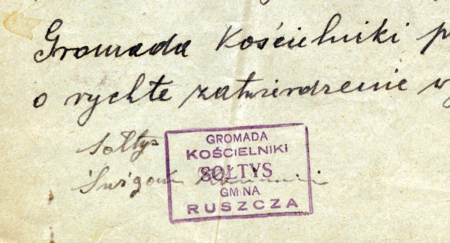 Gromada Kościelniki p
o rychłe zatwierdzenie wy
sołtys
GROMADA
KOŚCIELNIKI
SOŁTYS
GMINA
RUSZCZA